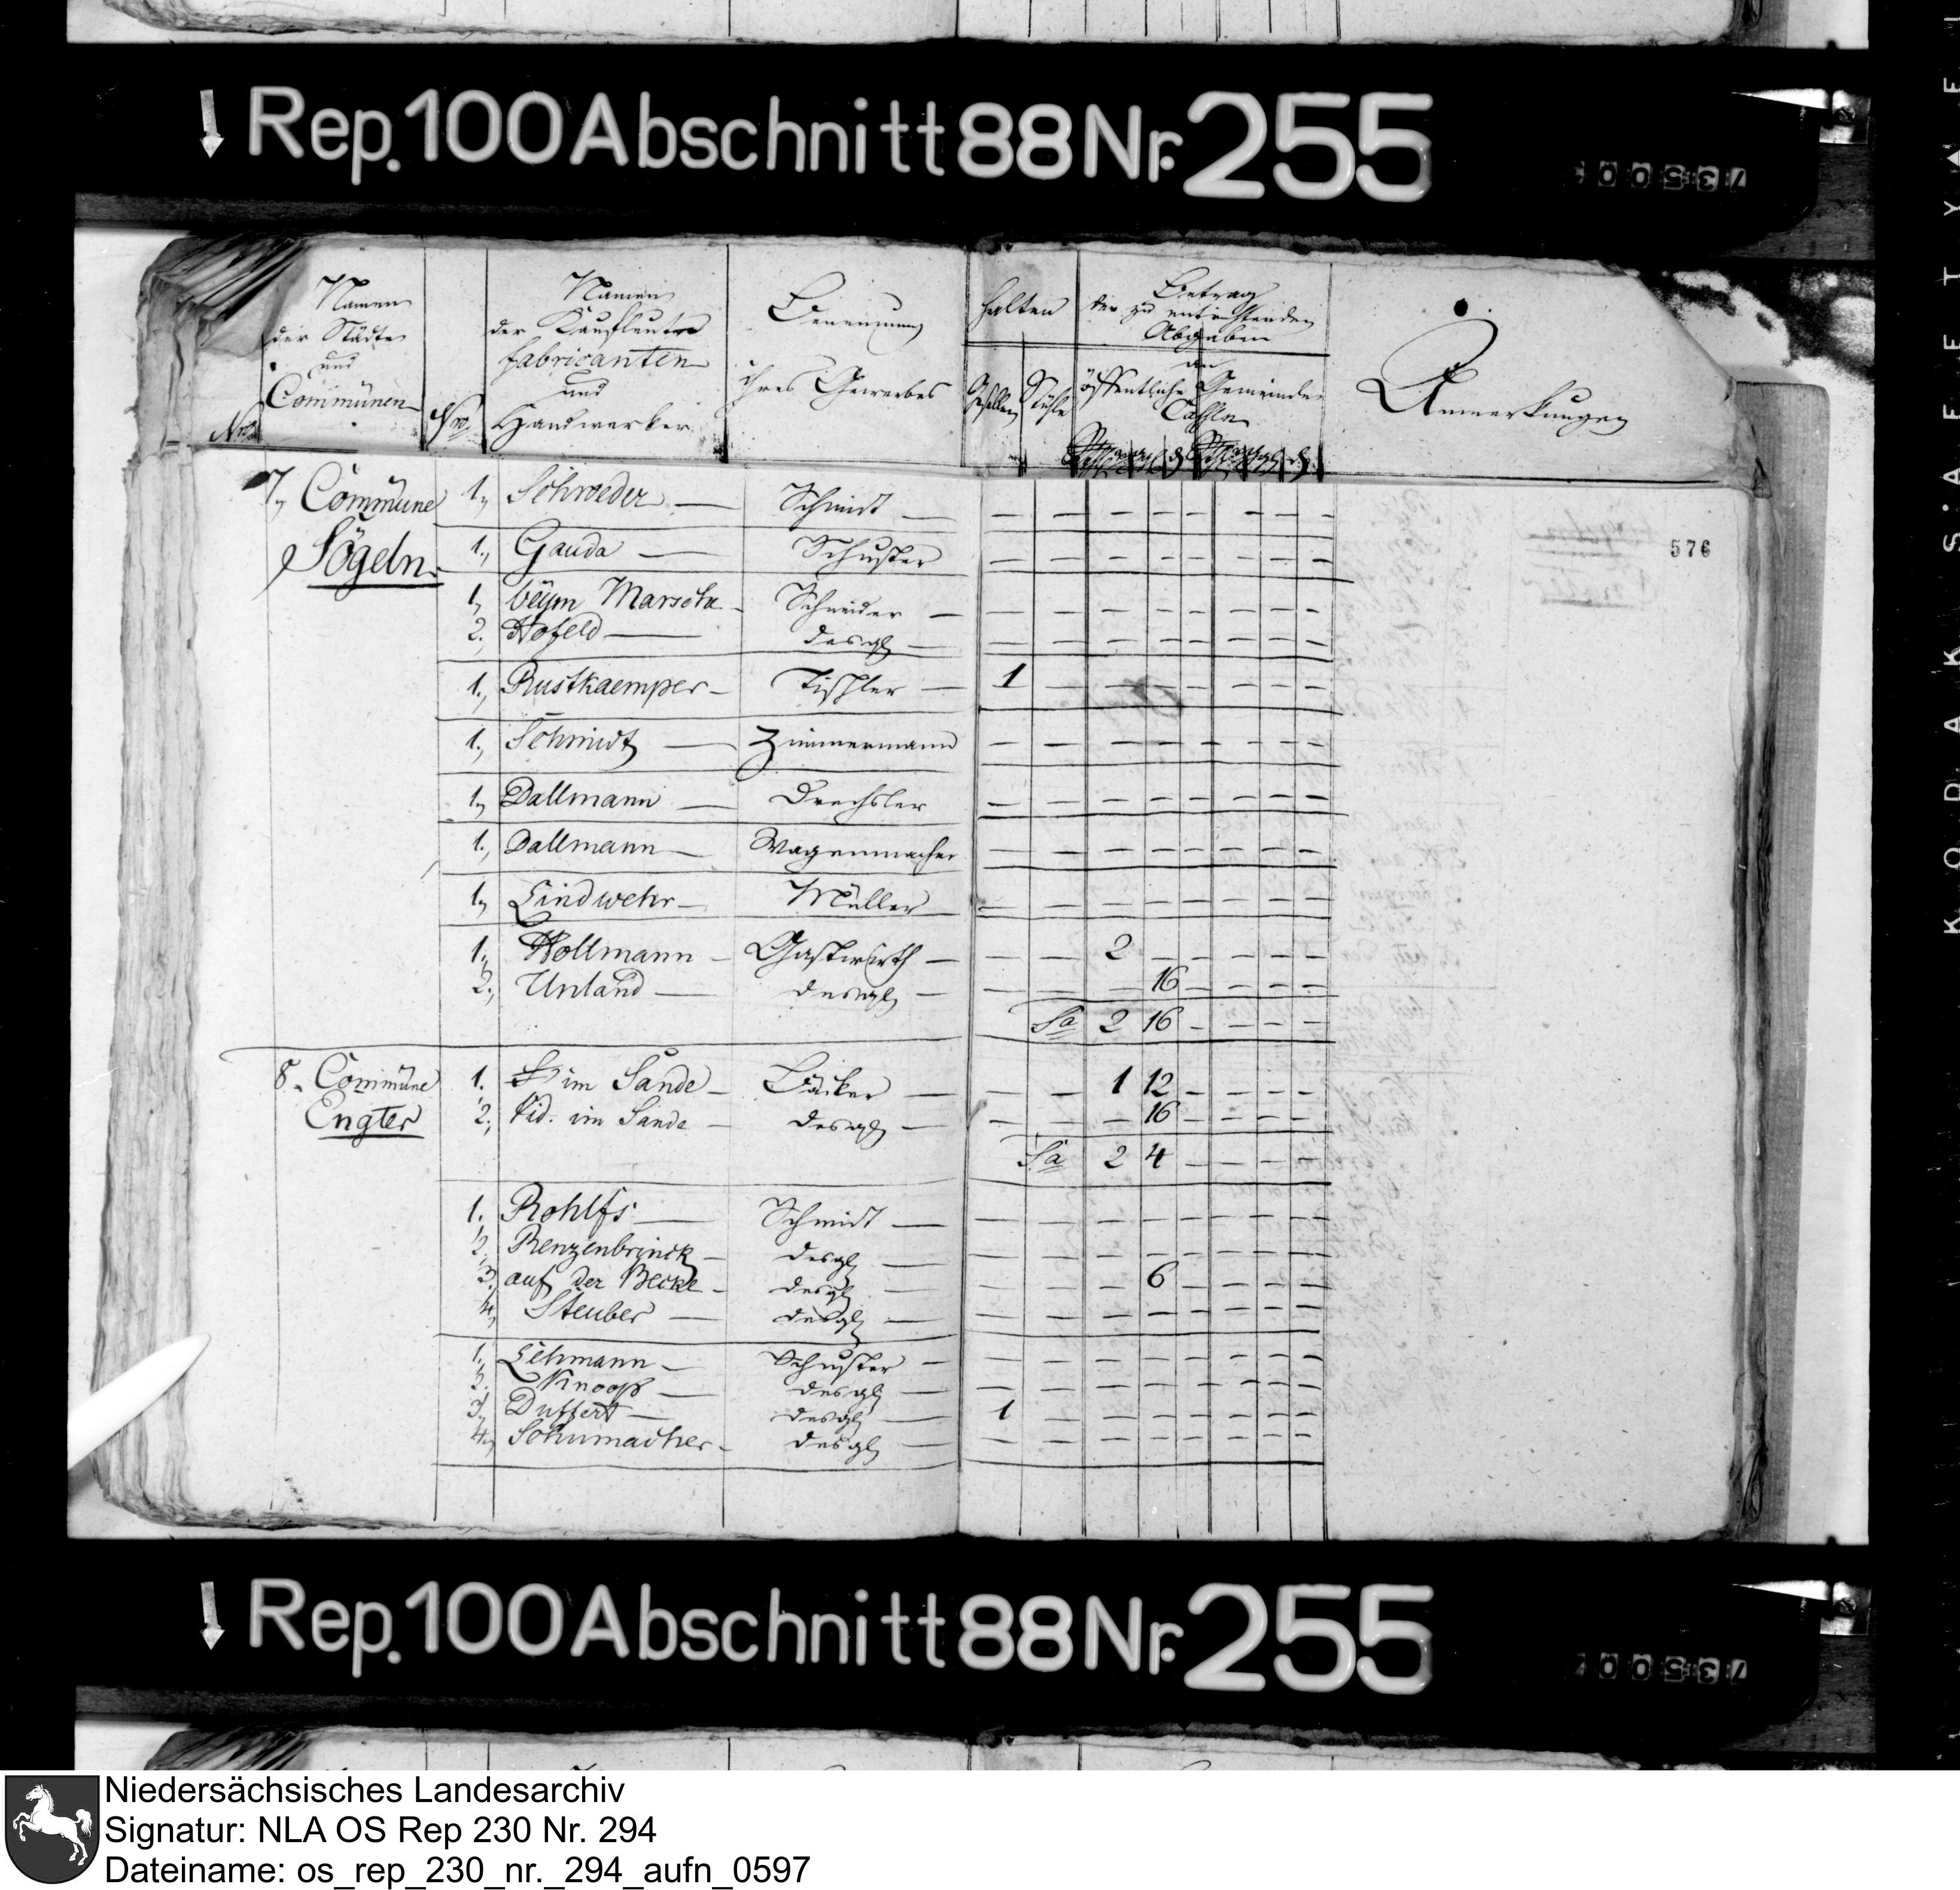 Rep. 100 Abschnitt 88 Nr. 255
Namen der Städte und Communen
Nro
Namen der Kaufleute fabricanten und Handwerker
Benennung ihres Gewerbes
halten
Gesellen Stühle
Betrag der zu entrichtenden Abgaben an öffentliche Gemeinde Cassen
Anmerkungen
576
7, Commune 1, Schroeder — Schmidt — — — — — — — — —
Sögeln. 1., Gauda — Schuster — — — — — — — —
1, beym Marsche - Schneider — — — — — — — — —
2. Hofeld — desgl — — — — — — — — —
1., Rustkaemper - Tischler — 1 — — — — — — —
1., Schmidt — Zimmermann — — — — — — — —
1, Dallmann — Drechsler — — — — — — — —
1., Dallmann — Wagenmacher — — — — — — — —
1, Lindwehr — Müller — — — — — — — — —
1, Wollmann - Gastwirth — — — 2 — — — — —
2., Unland — desgl — — — — 16 — — — —
Sa 2 16 — — — —
8. Commune 1. im Sande - Bäcker — — — 1 12 — — — —
Engter 2., Vid. im Sande - desgl — — — — 16 — — — —
Sa 2 4 — — — —
1. Rohlfs — Schmidt — — — — — — — — —
2. Renzenbrinck - desgl — — — — — — — — —
3, auf der Becke - desgl — — — — 6 — — — —
4, Steuber — desgl — — — — — — — — —
1., Lehmann — Schuster — — — — — — — — —
2. Knoop — desgl — — — — — — — — —
3, Duffert — desgl — 1 — — — — — — —
4, Schumacher - desgl — — — — — — — — —
Rep. 100 Abschnitt 88 Nr. 255
Niedersächsisches Landesarchiv
Signatur: NLA OS Rep 230 Nr. 294
Dateiname: os_rep_230_nr._294_aufn_0597